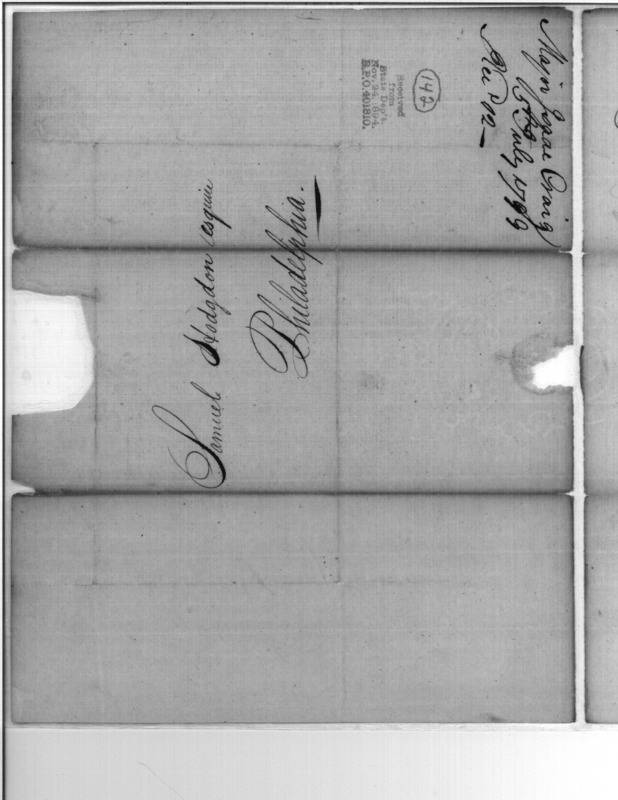 Samuel Hodgdon esquire
Philadelphia.
Major Isaac Craig
July 1799
Rec'd 12
142
Received
from
State Dep't.
Nov. 24, 1894.
R.P.O. 401810.